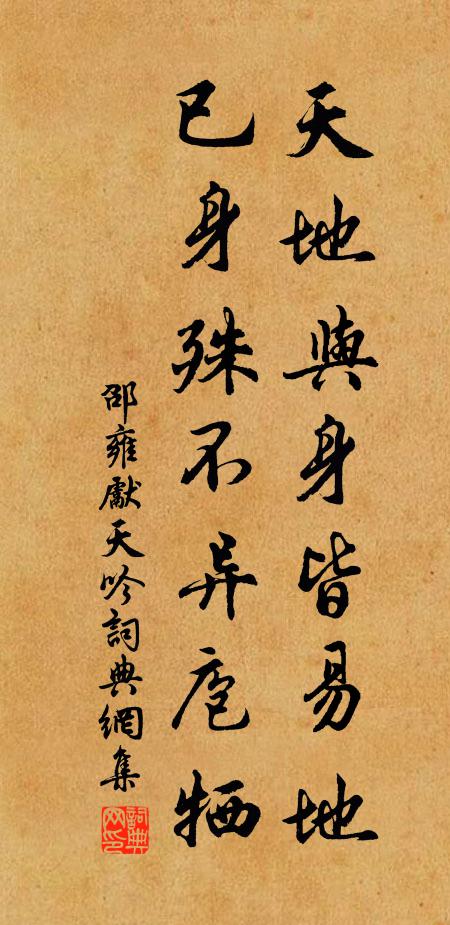 天地與身皆易地
已身殊不异庖牺
邵雍觀天吟詞典網集
詞典网印